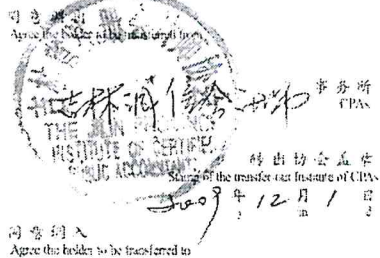 同意调出
Agree the holder to be transferred from
吉林诚信会计师 事务所
CPAs
THE JILIN PROVINCIAL
INSTITUTE OF CERTIFIED
PUBLIC ACCOUNTANTS
转出协会盖章
Stamp of the transfer-out Institute of CPAs
2009 年 12 月 1 日
y m d
同意调入
Agree the holder to be transferred to